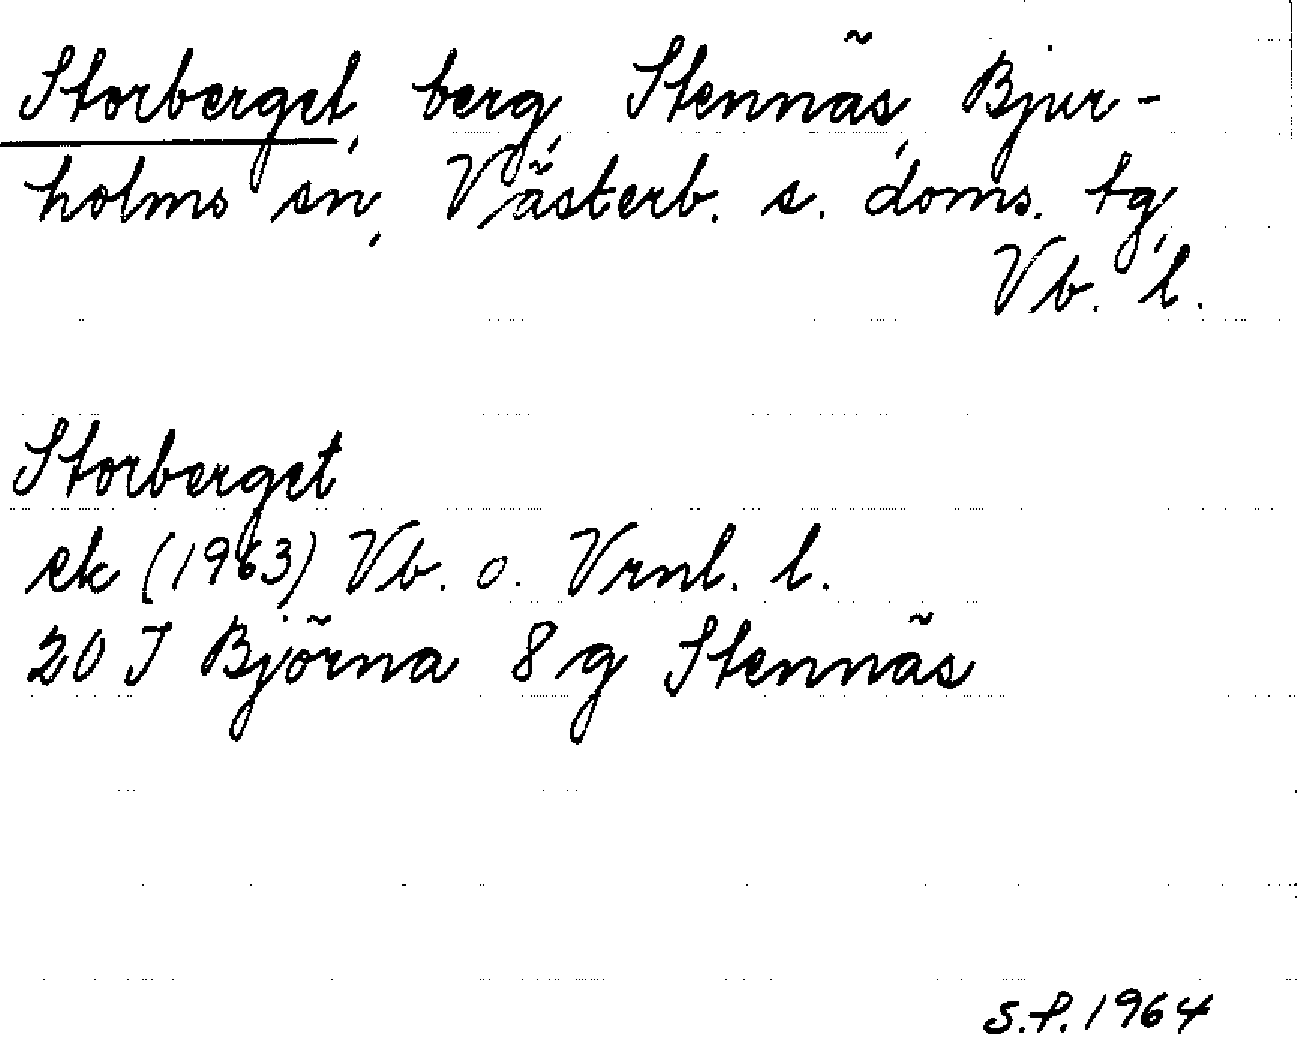 Storberget, berg, Stennäs, Bjur-
holms sn, Västerb. s. doms. tg,
Vb. l.
Storberget
ek (1963) Vb. o. Vrnl. l.
20 J Björna 8 g Stennäs
S.P. 1964